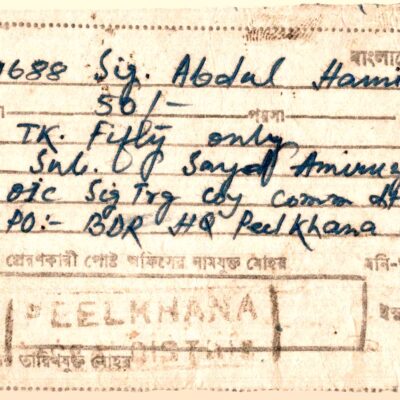 বাংলাদে
1688 Sig. Abdul Hami
50/- পয়সা
TK. Fifty only
Sub. Sayed Aminu
OIC Sig Trg coy comm
PO:- BDR HQ Peelkhana
প্রেরণকারী পোষ্ট অফিসের নামযুক্ত মোহর মনি-
PEELKHANA
তারিখযুক্ত মোহর